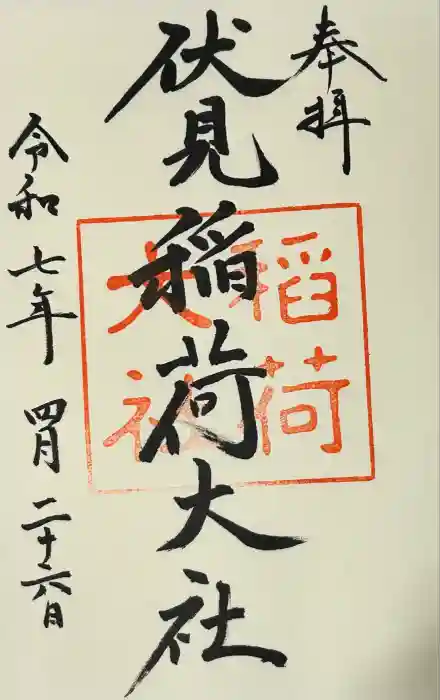 奉拝
伏見稲荷大社
稲荷
大社
令和七年 四月 二十六日